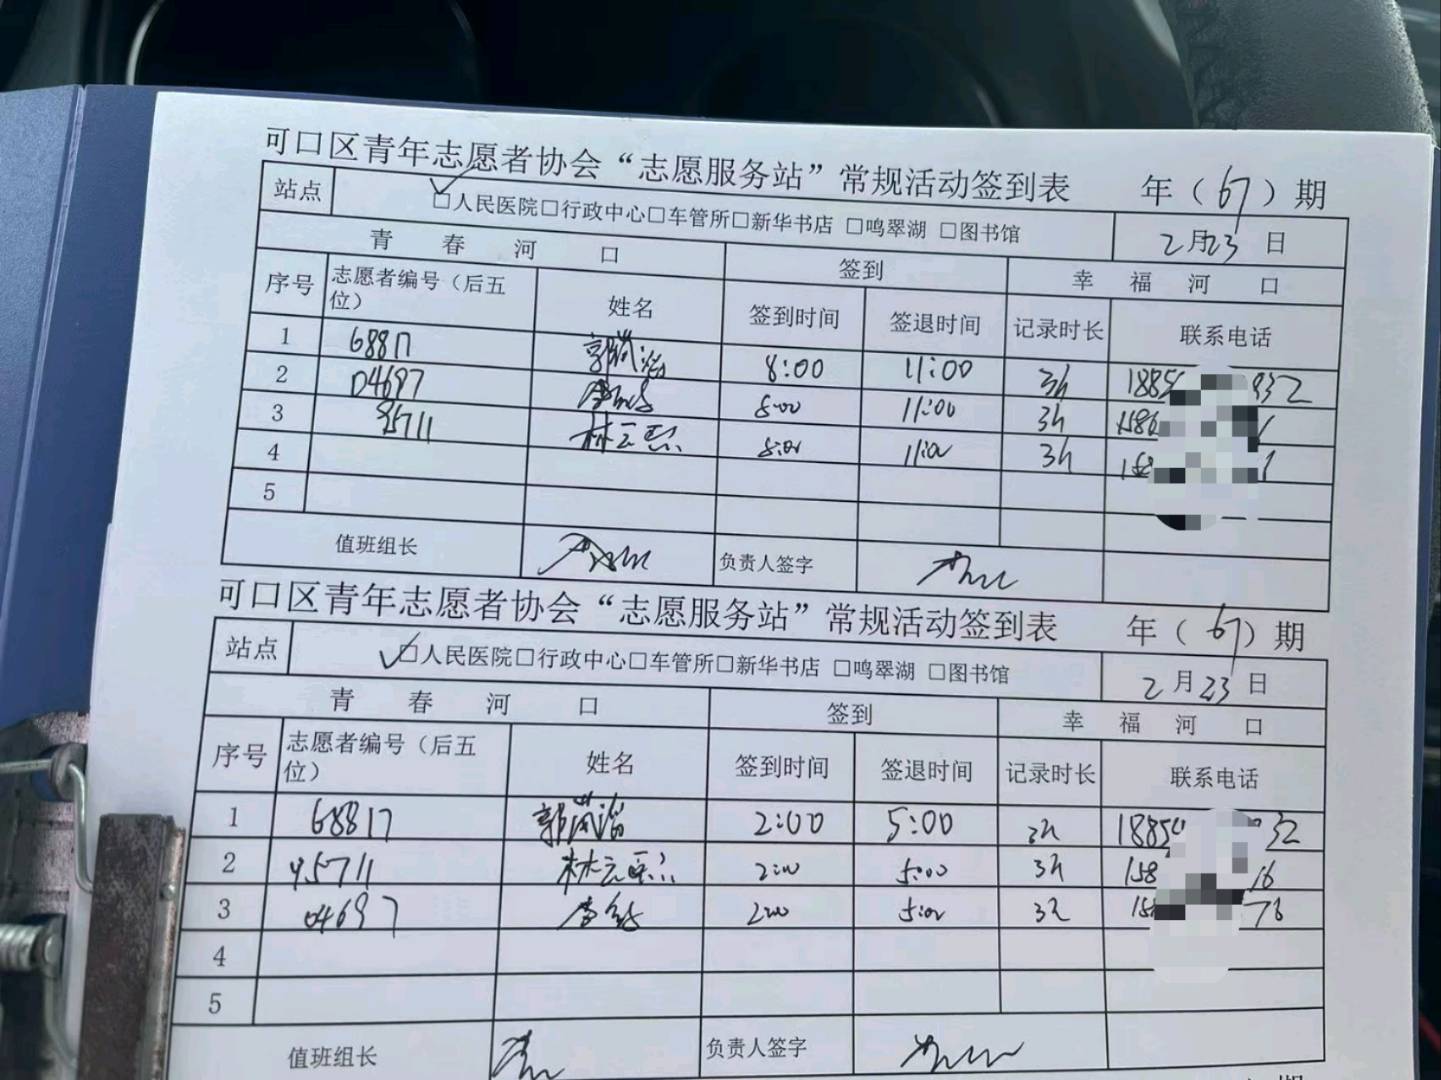 可口区青年志愿者协会“志愿服务站”常规活动签到表 年（67）期
站点 □人民医院□行政中心□车管所□新华书店 □鸣翠湖 □图书馆 2月23日
青春河口 签到 幸福河口
序号 志愿者编号（后五位） 姓名 签到时间 签退时间 记录时长 联系电话
1 68817 8:00 11:00 3h
2 04697 8:00 11:00 3h
3 95711 林元熙 8:00 11:00 3h
4
5
值班组长 负责人签字
可口区青年志愿者协会“志愿服务站”常规活动签到表 年（67）期
站点 □人民医院□行政中心□车管所□新华书店 □鸣翠湖 □图书馆 2月23日
青春河口 签到 幸福河口
序号 志愿者编号（后五位） 姓名 签到时间 签退时间 记录时长 联系电话
1 68817 2:00 5:00 3h
2 95711 林元熙 2:00 5:00 3h
3 04697 2:00 5:00 3h
4
5
值班组长 负责人签字